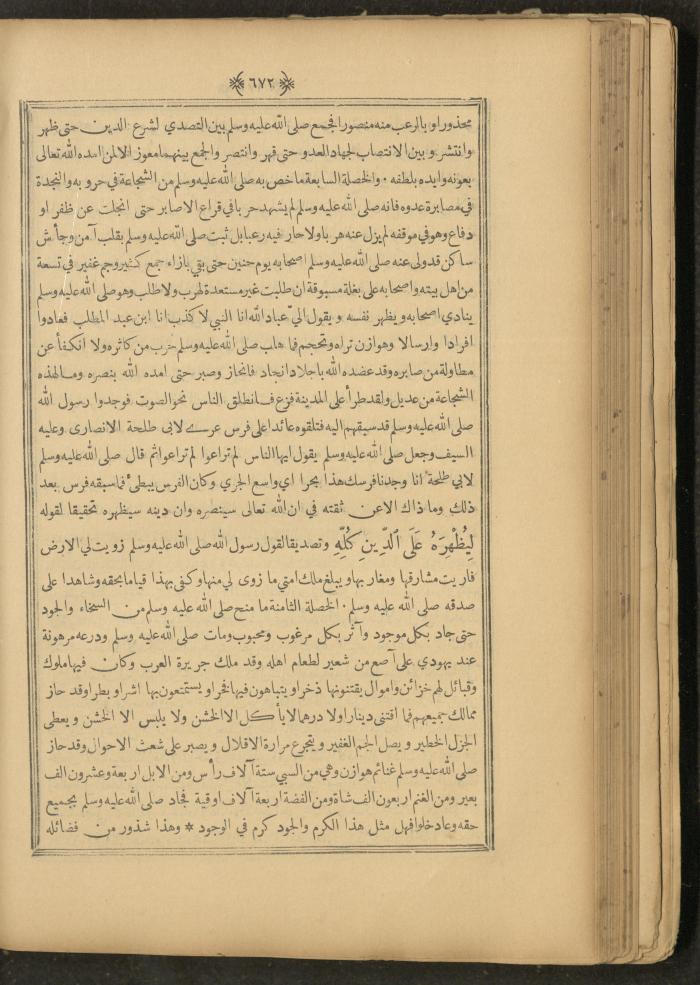 ٦٧٢
محذورا و بالرعب منه منصورا فجمع صلى الله عليه وسلم بين التصدي لشرع الدين حتى ظهر
وانتشر و بين الانتصاب لجهاد العدو حتى قهر وانتصر والجمع بينهما معوز الا لمن امده الله تعالى
بعونه وايده بلطفه ٠ والخصلة السابعة ما خص به صلى الله عليه وسلم من الشجاعة في حروبه والنجدة
في مصابرة عدوه فانه صلى الله عليه وسلم لم يشهد حربا في قراع الا صابر حتى انجلت عن ظفر او
دفاع وهو في موقفه لم يزل عنه هربا ولا حار فيه رعبا بل ثبت صلى الله عليه وسلم بقلب آمن وجأش
ساكن قد ولى عنه صلى الله عليه وسلم اصحابه يوم حنين حتى بقي بازاء جمع كثير وجم غفير في تسعة
من اهل بيته واصحابه على بغلة مسبوقة ان طلبت غير مستعدة لهرب ولا طلب وهو صلى الله عليه وسلم
ينادي اصحابه و يظهر نفسه و يقول اليّ عباد الله انا النبي لا كذب انا ابن عبد المطلب فعادوا
افرادا وارسالا وهوازن تراه وتحجم فما هاب صلى الله عليه وسلم حرب من كاثره ولا انكفأ عن
مطاولة من صابره وقد عضده الله باجلاد انجاد فانحاز وصبر حتى امده الله بنصره وما لهذه
الشجاعة من عديل ولقد طرأ على المدينة فزع فانطلق الناس نحو الصوت فوجدوا رسول الله
صلى الله عليه وسلم قد سبقهم اليه فتلقوه عائدا على فرس عرے لابي طلحة الانصارى وعليه
السيف وجعل صلى الله عليه وسلم يقول ايها الناس لم تراعوا لم تراعوا ثم قال صلى الله عليه وسلم
لابي طلحة انا وجدنا فرسك هذا بحرا اي واسع الجري وكان الفرس يبطئ فما سبقه فرس بعد
ذلك وما ذاك الا عن ثقته في ان الله تعالى سينصره وان دينه سيظهره تحقيقا لقوله
لِيُظْهِرَهُ عَلَى ٱلدِّينِ كُلِّهِ وتصديقا لقول رسول الله صلى الله عليه وسلم زويت لي الارض
فاريت مشارقها ومغاربها و يبلغ ملك امتي ما زوى لي منها وكفى بهذا قياما بحقه وشاهدا على
صدقه صلى الله عليه وسلم ٠ الخصلة الثامنة ما منح صلى الله عليه وسلم من السخاء والجود
حتى جاد بكل موجود وآثر بكل مرغوب ومحبوب ومات صلى الله عليه وسلم ودرعه مرهونة
عند يهودي على آصع من شعير لطعام اهله وقد ملك جزيرة العرب وكان فيها ملوك
وقبائل لهم خزائن واموال يقتنونها ذخرا و يتباهون فيها فخرا و يستمتعون بها اشرا وبطرا وقد حاز
ممالك جميعهم فما اقتنى دينارا ولا درهما لا يأكل الا الخشن ولا يلبس الا الخشن و يعطى
الجزل الخطير و يصل الجم الغفير و يتجرع مرارة الاقلال و يصبر على شعث الاحوال وقد حاز
صلى الله عليه وسلم غنائم هوازن وهي من السبي ستة آلاف رأس ومن الابل اربعة وعشرون الف
بعير ومن الغنم اربعون الف شاة ومن الفضة اربعة آلاف اوقية فجاد صلى الله عليه وسلم بجميع
حقه وعاد خلوا فهل مثل هذا الكرم والجود كرم في الوجود * وهذا شذور من فضائله